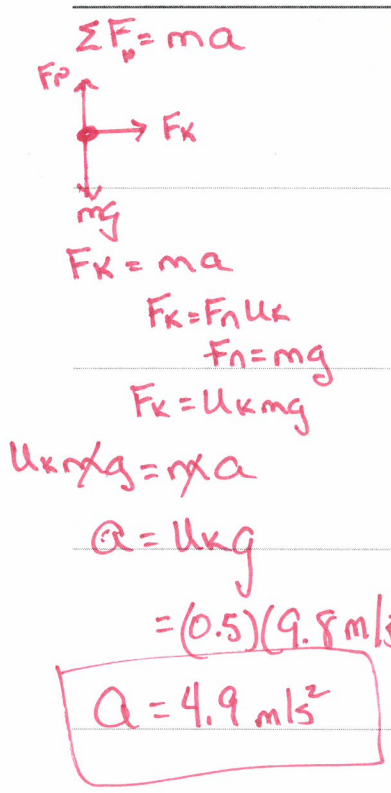 ΣFp = ma
Fn
Fk
mg
Fk = ma
Fk = Fn Uk
Fn = mg
Fk = Uk mg
Uk mg = ma
a = Uk g
= (0.5)(9.8 m/s
a = 4.9 m/s²